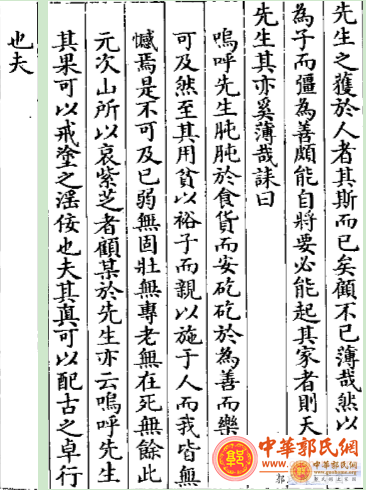 先生之獲於人者其斯而已矣顧不已薄哉然以
為子而彊為善頗能自將要必能起其家者則天
先生其亦奚薄哉誄曰
嗚呼先生肫肫於食貨而安矻矻於為善而樂
可及然至其用貧以裕子而親以施于人而我皆無
憾焉是不可及已弱無固壯無專老無在死無餘此
元次山所以哀紫芝者顧某於先生亦云嗚呼先生
其果可以戒塗之滛佞也夫其真可以配古之卓行
也夫
中華郭氏網